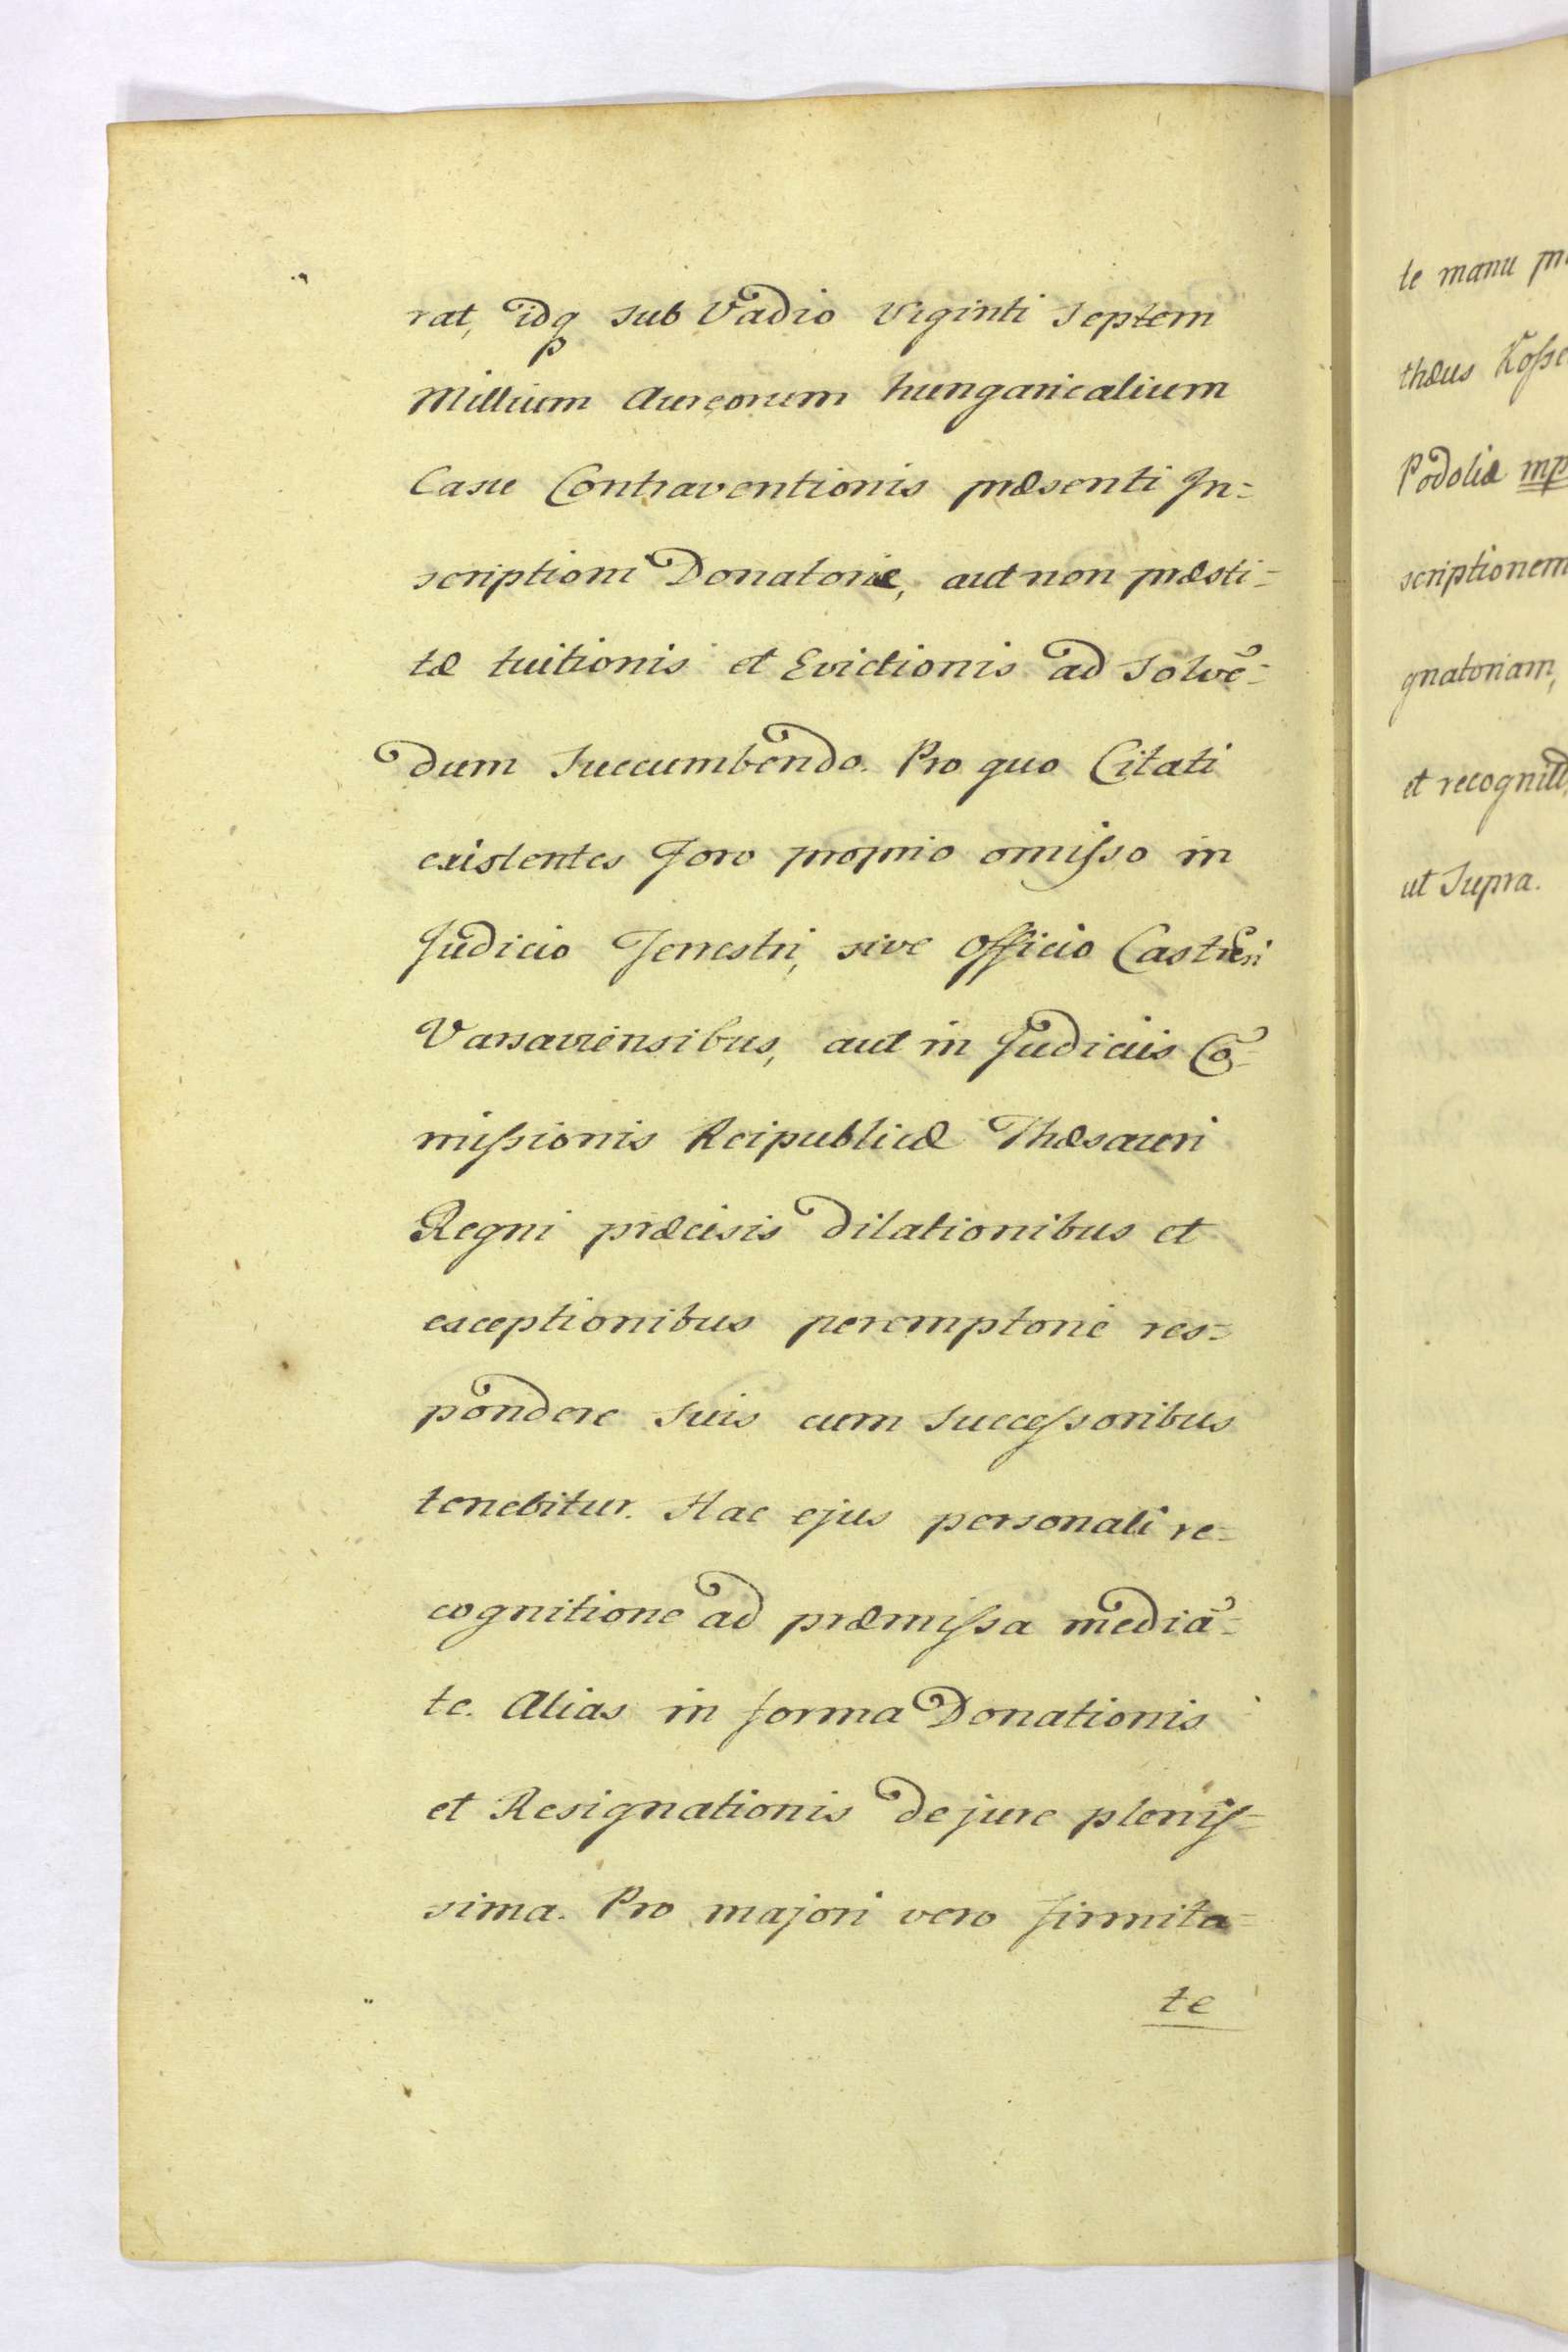 rat, idq sub Vadio Viginti Septem
Millium Aureorum hungaricalium
Casu Contraventionis præsenti In=
scriptioni Donatoriæ, aut non præsti=
tæ tuitionis et Evictionis ad Solvē=
dum Succumbendo. Pro quo Citati
existentes Foro proprio omisso in
Judicio Terrestri, sive Officio Castren̄
Varsaviensibus, aut in Judiciis Cō=
missionis Reipublicæ Thæsauri
Regni præcisis dilationibus et
exceptionibus peremptorie res=
pondere Suis cum Successoribus
tenebitur. Hac ejus personali re=
cognitione ad præmissa mediā=
te. Alias in forma Donationis
et Resignationis de jure plenis=
sima. Pro majori vero firmita=
te
te manu
thæus
Podoliæ mp
scriptionem
gnatoriam,
et
ut Supra.